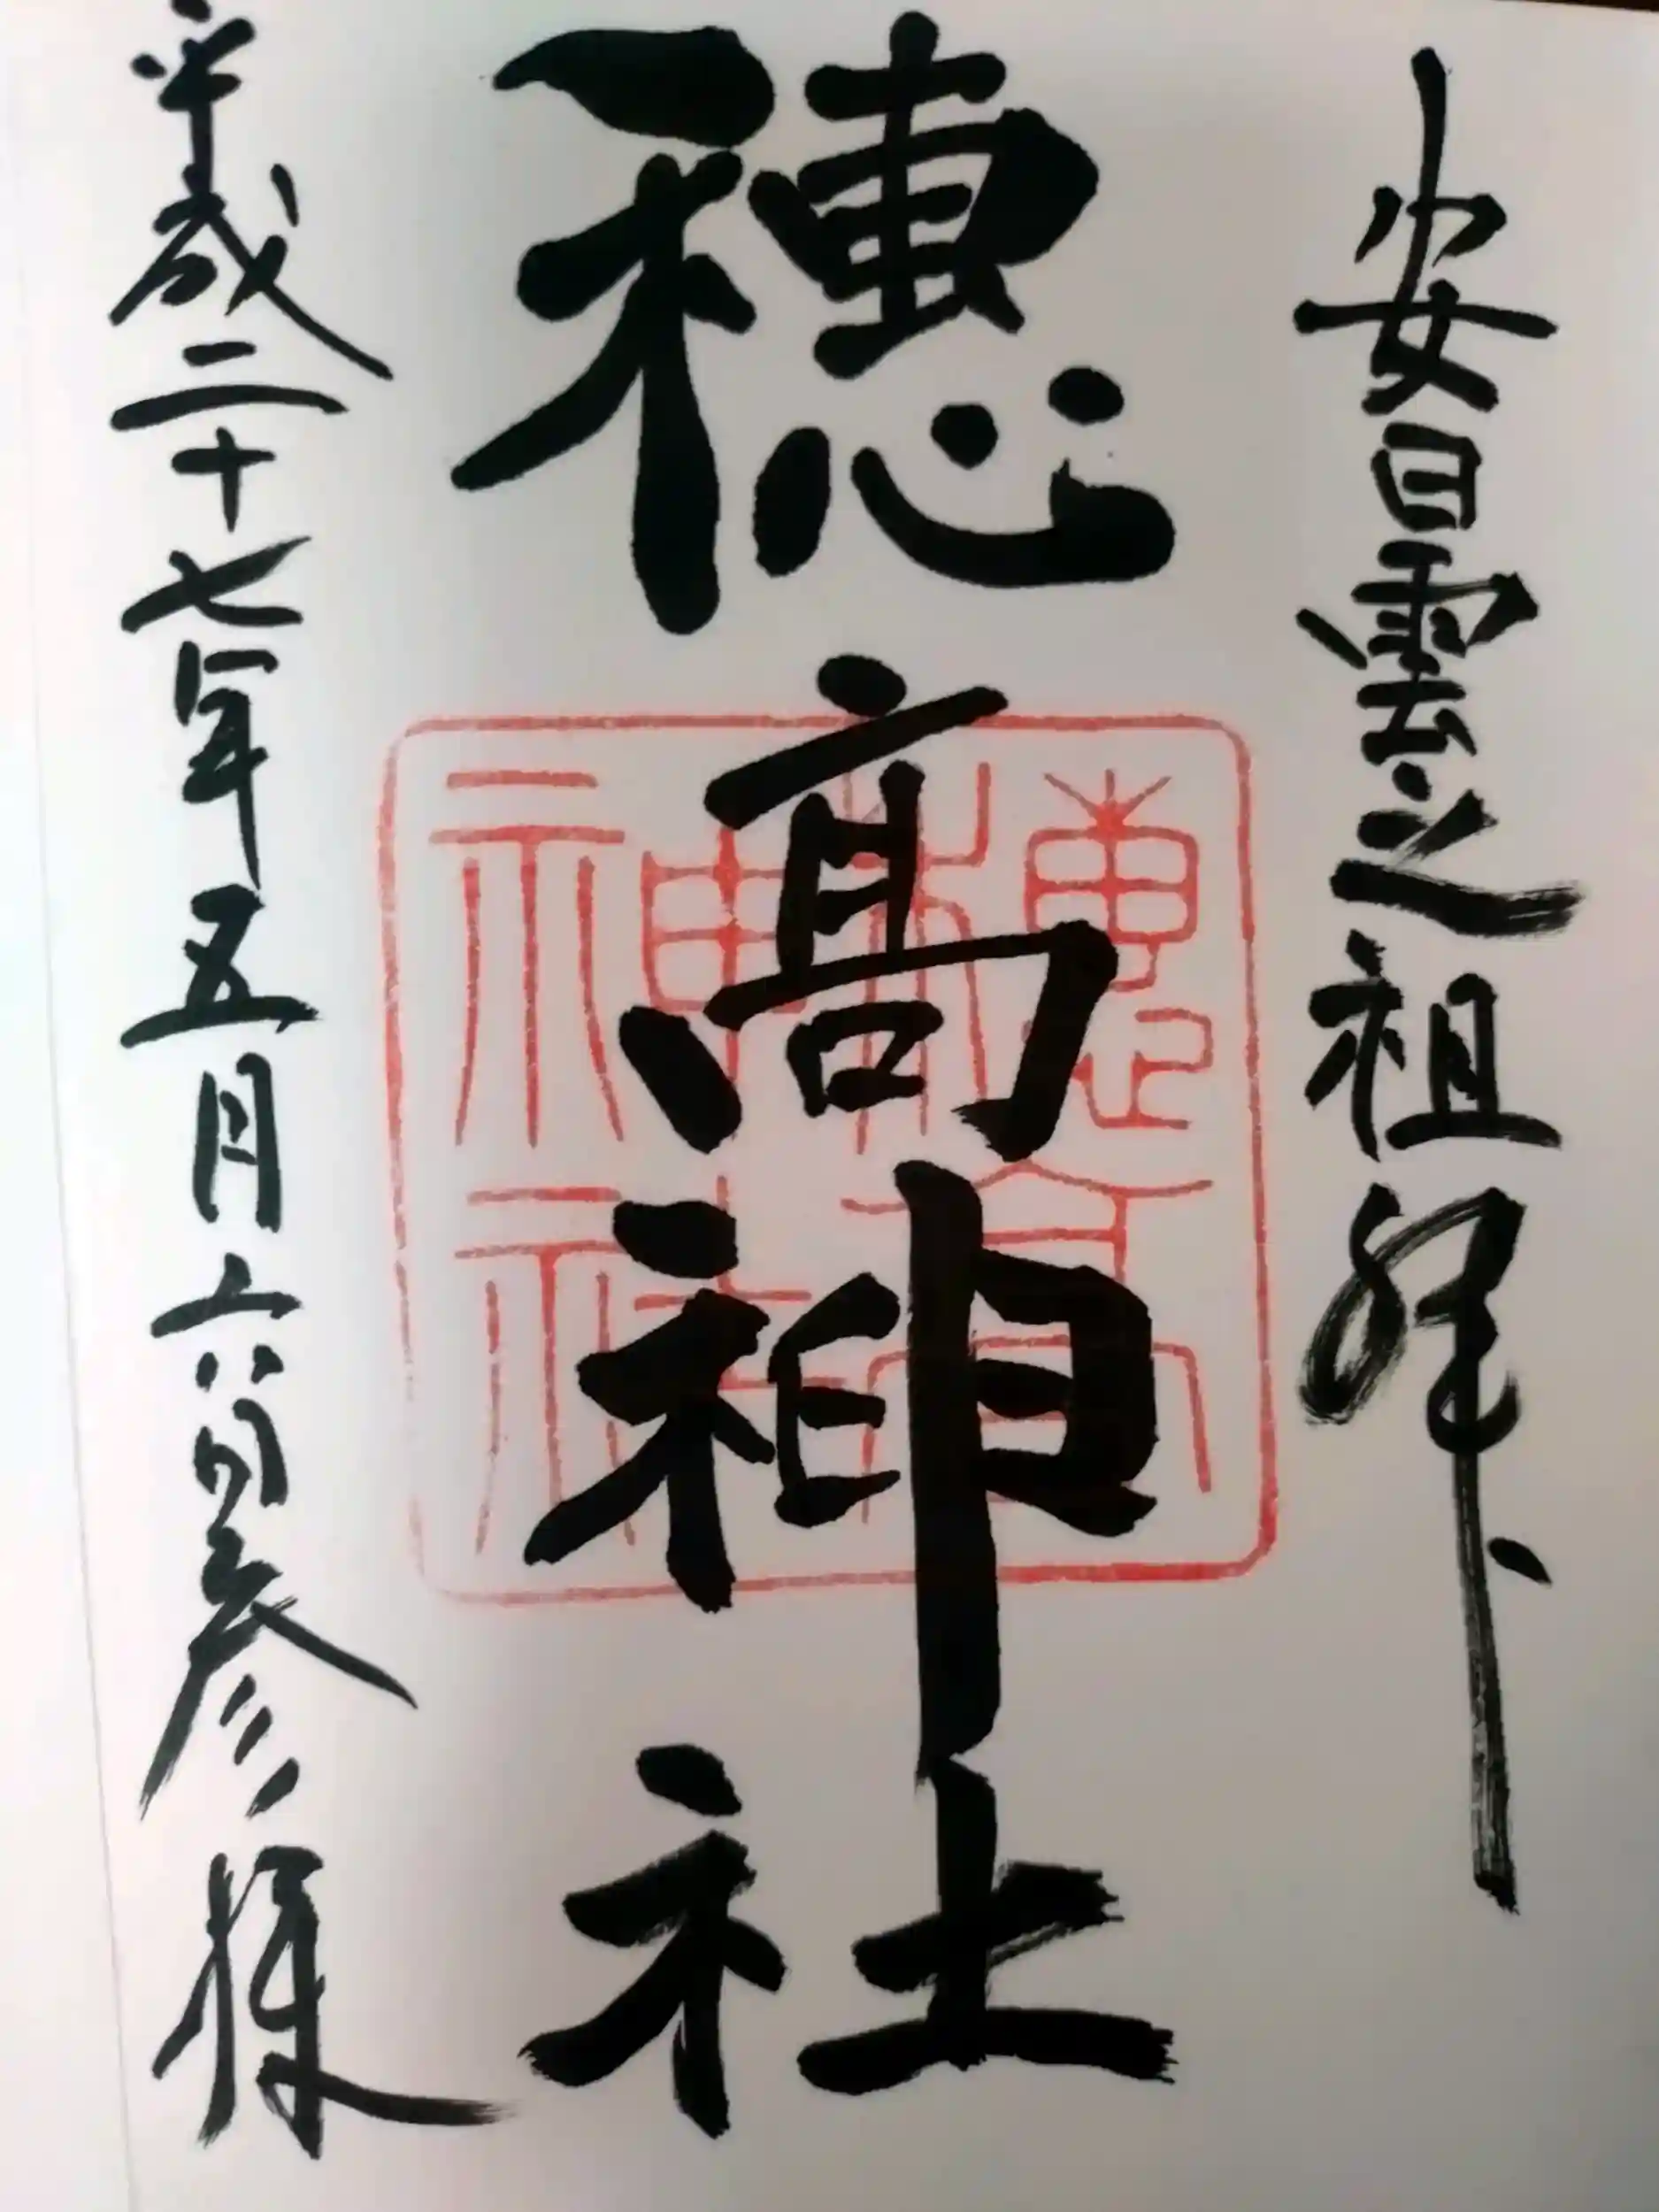 安曇之祖神
穗髙神社
平成二十七年五月六日参拝
穗高神社